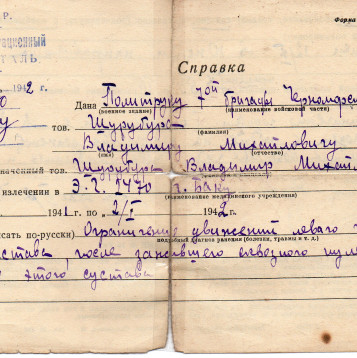 Р.
Форма
ационный
ТАЛЬ
1942 г.
Справка
Дана Политруку 7ой бригады Черноморс
(военное звание) (наименование войсковой части)
тов. Шурубура
(фамилия)
Владимиру Михайловичу
(имя) (отчество)
наченный тов. Шурубура Владимир Михайл
излечении в Э.Г. 7470 г. Баку
(наименование медицинского учреждения)
1941 г. по 2/I 1942 г.
исать по-русски) Ограничение движений левого
подробный диагноз ранения (болезни, травмы и т. д.)
става после зажившего сквозного пул
этого сустава